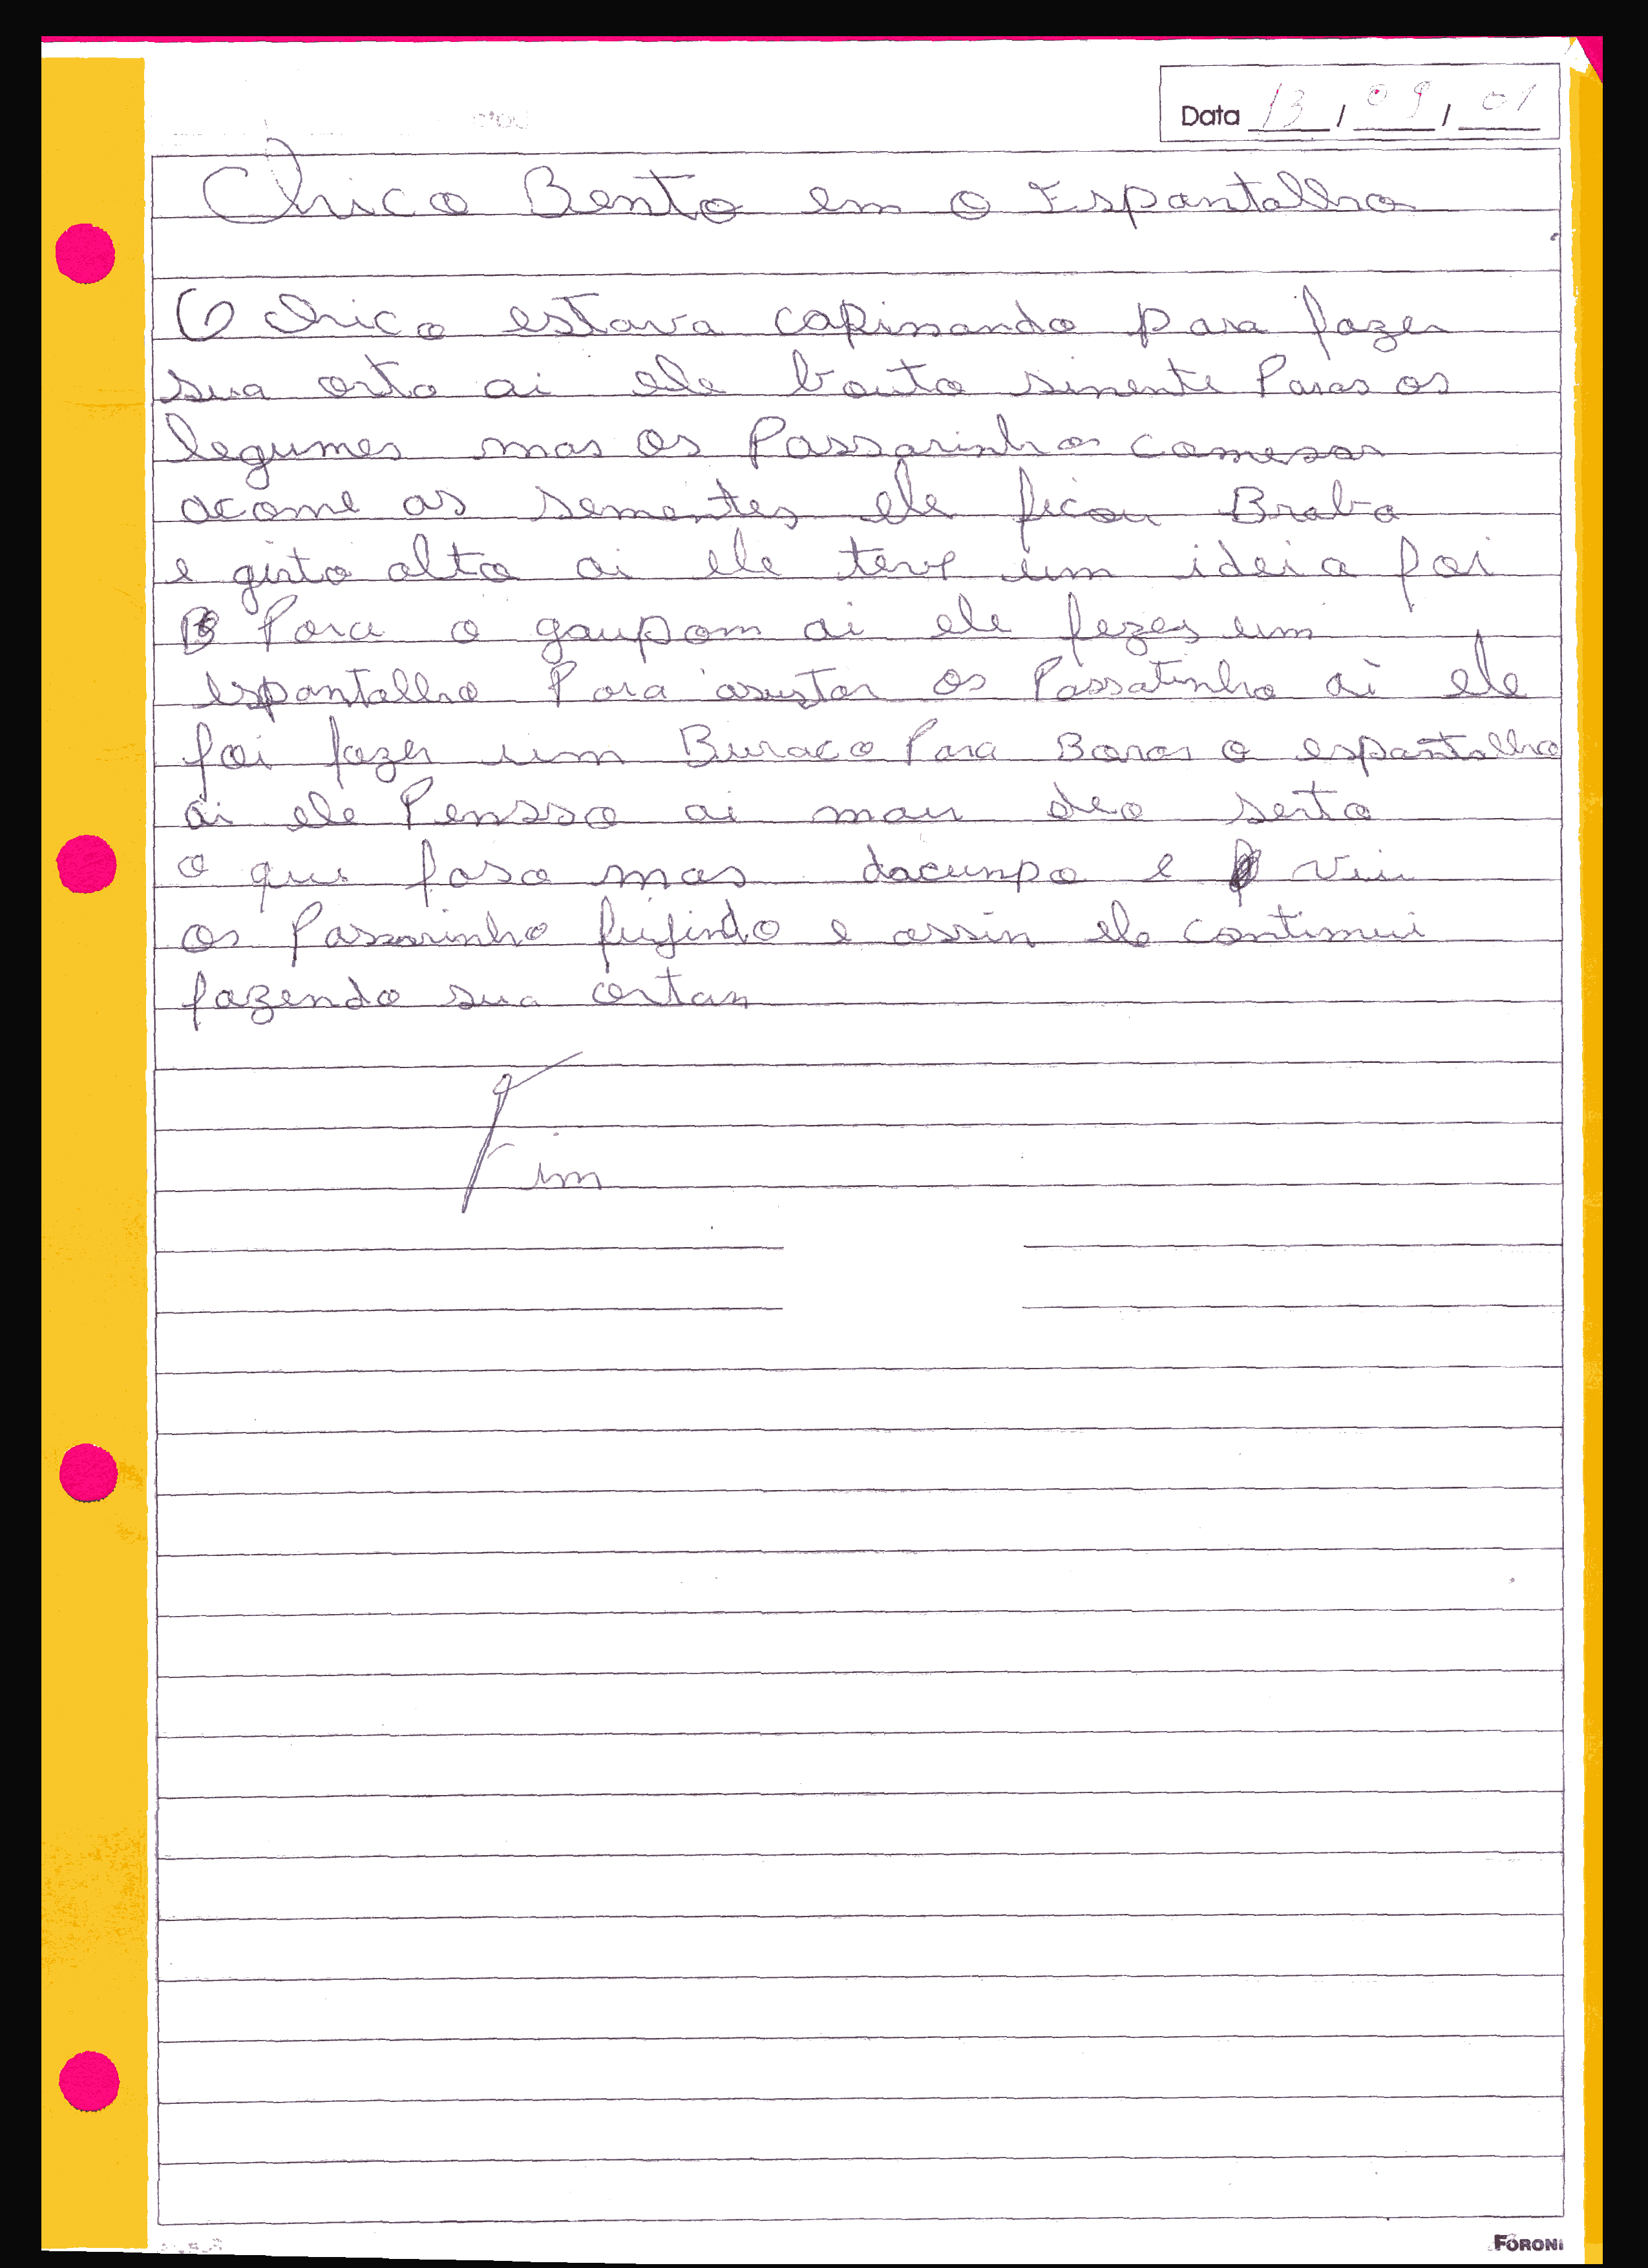 Data 13 / 09 / 01
Chico Bento em o Espantalho
O chico estava capinando para fazer
sua orta ai ele bouto simente Paras os
legumes mas os Passarinho comesar
acome as sementes ele ficou Brabo
e girto alto ai ele teve um ideia foi
Para o gaupom ai ele fezes um
espantalho Para asustar os Passatinho ai ele
foi fazer um Buraco Para Boras o espantalho
ai ele Pensso ai mau deo serto
o que faso mas dacunpo e viu
os Passarinho fugindo e assin ele continui
fazendo sua ortas
Fim
FORONI